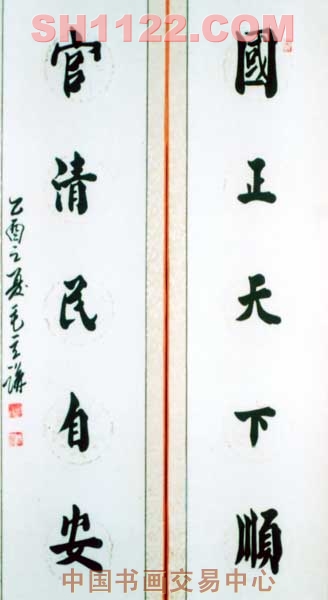 SH1122.COM
國正天下順
官清民自安
乙酉之夏毛
中国书画交易中心